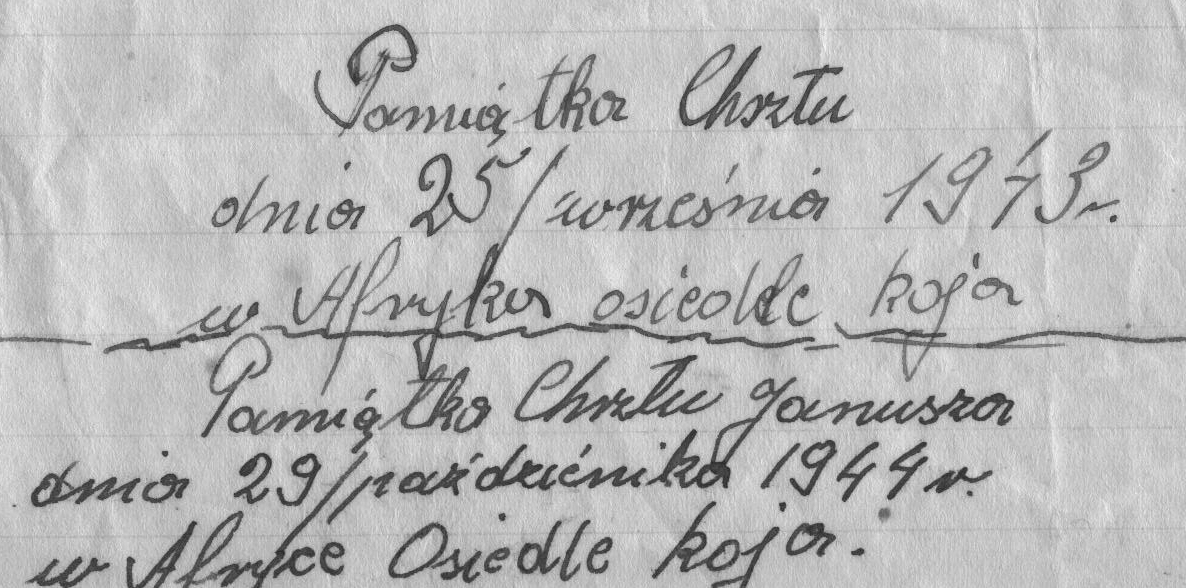 Pamiątka Chrztu
dnia 25/września 1943 r.
w Afryka osiedle koja
Pamiątka Chrztu Janusza
dnia 29/paździćnika 1944 r.
w Afryce Osiedle koja.